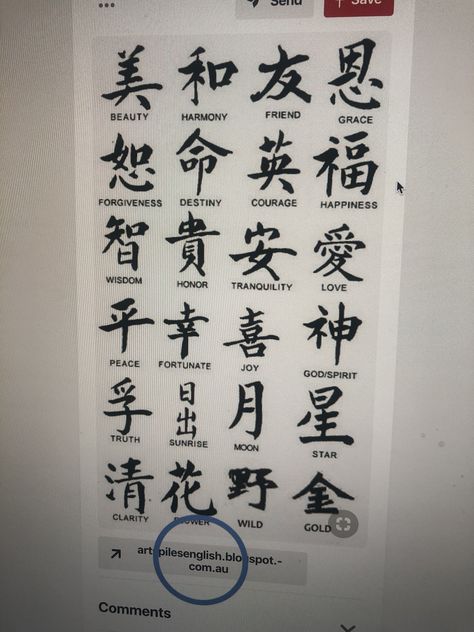 Send Save
美 和 友 恩
BEAUTY HARMONY FRIEND GRACE
恕 命 英 福
FORGIVENESS DESTINY COURAGE HAPPINESS
智 貴 安 愛
WISDOM HONOR TRANQUILITY LOVE
平 幸 喜 神
PEACE FORTUNATE JOY GOD/SPIRIT
孚 日出 月 星
TRUTH SUNRISE MOON STAR
清 花 野 金
CLARITY FLOWER WILD GOLD
com.au
Comments